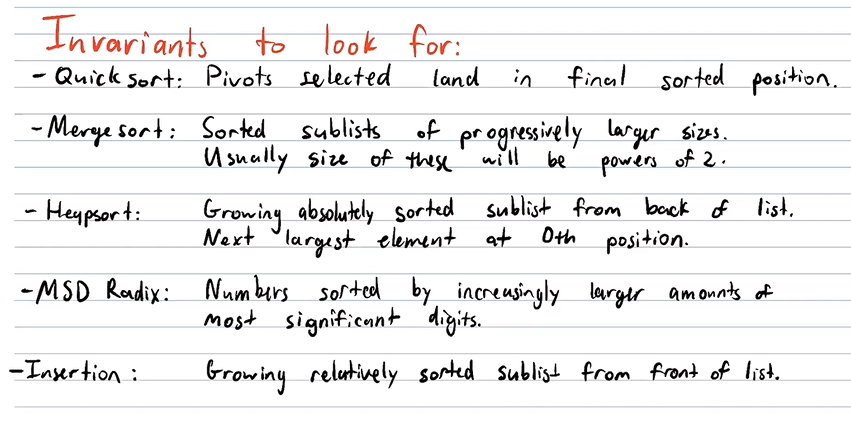 Invariants to look for:
- Quicksort: Pivots selected land in final sorted position.
- Mergesort: Sorted sublists of progressively larger sizes.
Usually size of these will be powers of 2.
- Heapsort: Growing absolutely sorted sublist from back of list.
Next largest element at 0th position.
- MSD Radix: Numbers sorted by increasingly larger amounts of
most significant digits.
- Insertion: Growing relatively sorted sublist from front of list.